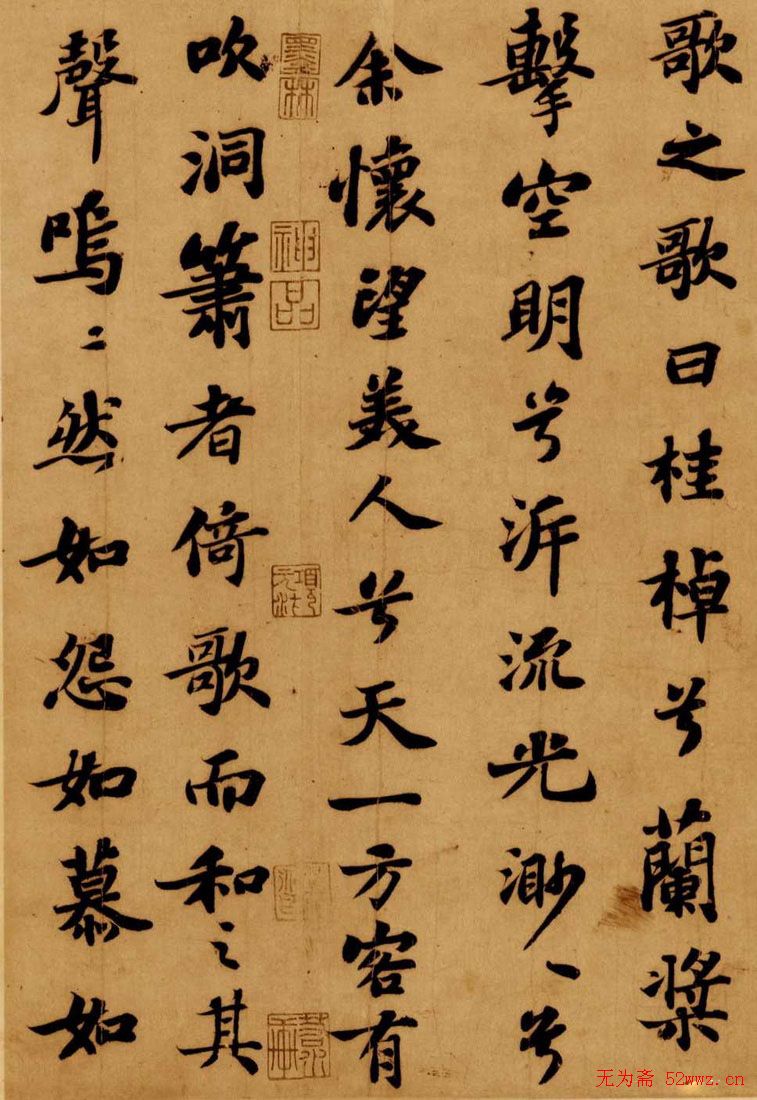 歌之歌曰桂棹兮蘭槳
擊空明兮泝流光渺〻兮
余懷望美人兮天一方客有
吹洞簫者倚歌而和之其
聲嗚〻然如怨如慕如
神品
无为斋 52wwz.cn